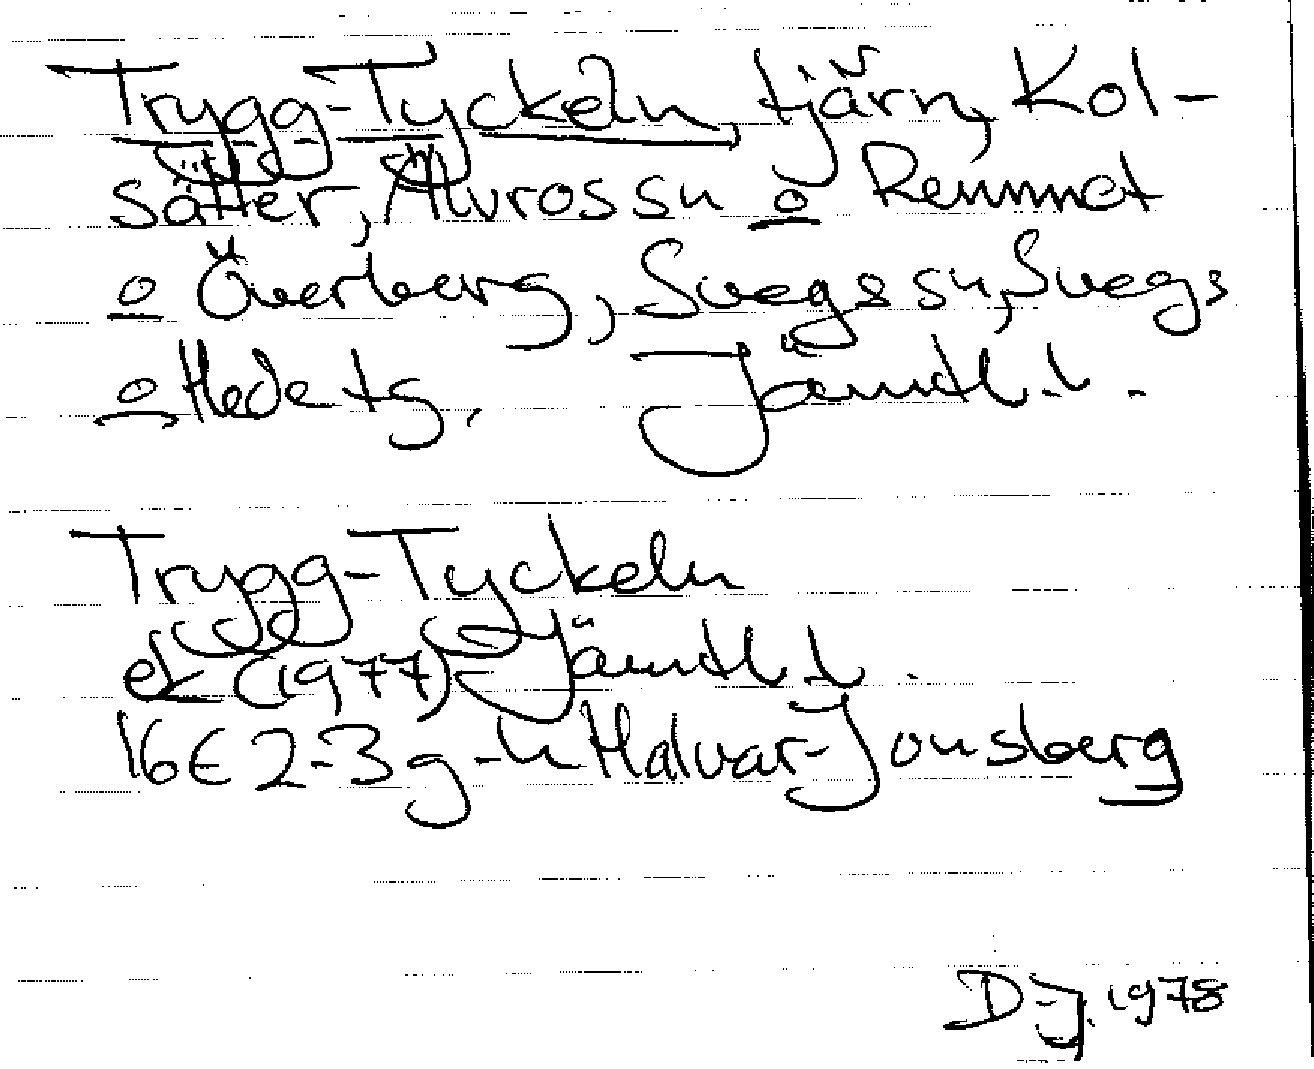 Trygg-Tyckeln, tjärn, Kol-
sätter, Älvros sn o Remmet
o Överberg, Svegs sn, Svegs
o Hede tg, Jämtl. l.
Trygg-Tyckeln
ek (1977) Jämtl. l.
16E 2-3 g-h Halvar-Jonsberg
D-J. 1978